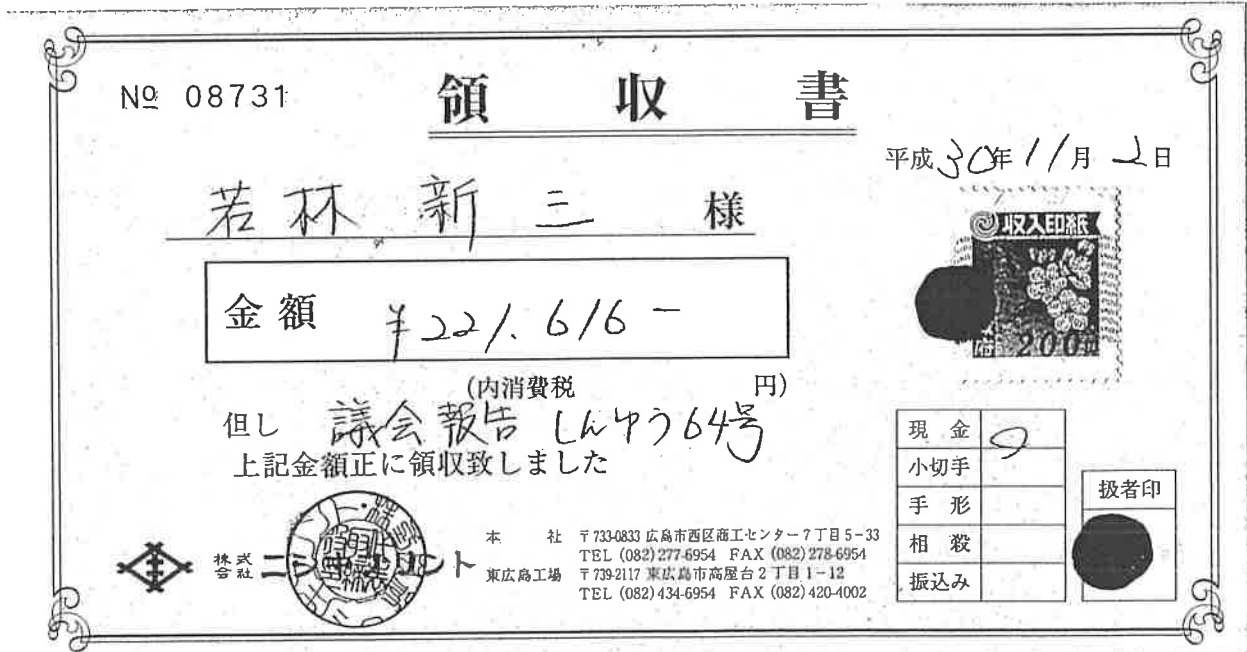 № 08731
領収書
平成30年11月2日
若林 新三 様
収入印紙
200円
金額 ¥221.616-
(内消費税 円)
但し 議会報告 しんゆう64号
上記金額正に領収致しました
現金
小切手
手形
相殺
振込み
扱者印
株式会社 ニ
ト
本社 〒733-0833 広島市西区商工センター7丁目5-33
TEL (082)277-6954 FAX (082)278-6954
東広島工場 〒739-2117 東広島市高屋台2丁目1-12
TEL (082)434-6954 FAX (082)420-4002